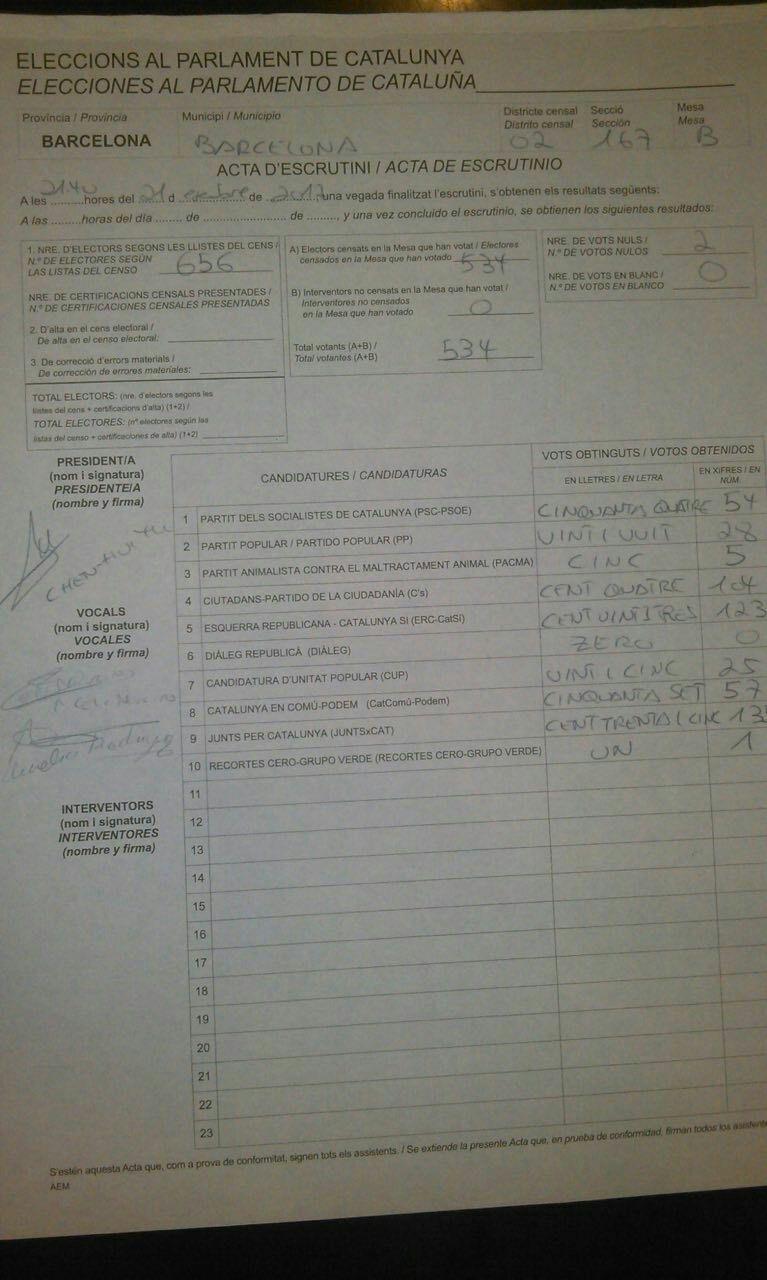 ELECCIONS AL PARLAMENT DE CATALUNYA
ELECCIONES AL PARLAMENTO DE CATALUÑA
Província / Provincia Municipi / Municipio Districte censal Secció Mesa
Distrito censal Sección Mesa
BARCELONA BARCELONA 02 167 B
ACTA D'ESCRUTINI / ACTA DE ESCRUTINIO
A les 2140 hores del 21 d de 2017, una vegada finalitzat l'escrutini, s'obtenen els resultats següents:
A las ..........horas del día ........ de ........................ de ........., y una vez concluido el escrutinio, se obtienen los siguientes resultados:
1. NRE. D'ELECTORS SEGONS LES LLISTES DEL CENS /
N.º DE ELECTORES SEGÚN
LAS LISTAS DEL CENSO 656
NRE. DE CERTIFICACIONS CENSALS PRESENTADES /
N.º DE CERTIFICACIONES CENSALES PRESENTADAS
2. D'alta en el cens electoral /
De alta en el censo electoral:
3. De correcció d'errors materials /
De corrección de errores materiales:
TOTAL ELECTORS: (nre. d'electors segons les
llistes del cens + certificacions d'alta) (1+2) /
TOTAL ELECTORES: (nº electores según las
listas del censo + certificaciones de alta) (1+2)
A) Electors censats en la Mesa que han votat / Electores
censados en la Mesa que han votado 534
B) Interventors no censats en la Mesa que han votat /
Interventores no censados
en la Mesa que han votado 0
Total votants (A+B) /
Total votantes (A+B) 534
NRE. DE VOTS NULS /
N.º DE VOTOS NULOS 2
NRE. DE VOTS EN BLANC /
N.º DE VOTOS EN BLANCO 0
PRESIDENT/A
(nom i signatura)
PRESIDENTE/A
(nombre y firma)
VOCALS
(nom i signatura)
VOCALES
(nombre y firma)
INTERVENTORS
(nom i signatura)
INTERVENTORES
(nombre y firma)
CANDIDATURES / CANDIDATURAS VOTS OBTINGUTS / VOTOS OBTENIDOS
EN LLETRES / EN LETRA EN XIFRES / EN NÚM.
1 PARTIT DELS SOCIALISTES DE CATALUNYA (PSC-PSOE) CINQUANTA QUATRE 54
2 PARTIT POPULAR / PARTIDO POPULAR (PP) VINT I VUIT 28
3 PARTIT ANIMALISTA CONTRA EL MALTRACTAMENT ANIMAL (PACMA) CINC 5
4 CIUTADANS-PARTIDO DE LA CIUDADANÍA (C's) CENT QUATRE 104
5 ESQUERRA REPUBLICANA - CATALUNYA SÍ (ERC-CatSí) CENT VINT I TRES 123
6 DIÀLEG REPUBLICÀ (DIÀLEG) ZERO 0
7 CANDIDATURA D'UNITAT POPULAR (CUP) VINT I CINC 25
8 CATALUNYA EN COMÚ-PODEM (CatComú-Podem) CINQUANTA SET 57
9 JUNTS PER CATALUNYA (JUNTSxCAT) CENT TRENTA I CINC 135
10 RECORTES CERO-GRUPO VERDE (RECORTES CERO-GRUPO VERDE) UN 1
11
12
13
14
15
16
17
18
19
20
21
22
23
S'estén aquesta Acta que, com a prova de conformitat, signen tots els assistents. / Se extiende la presente Acta que, en prueba de conformidad, firman todos los
AEM